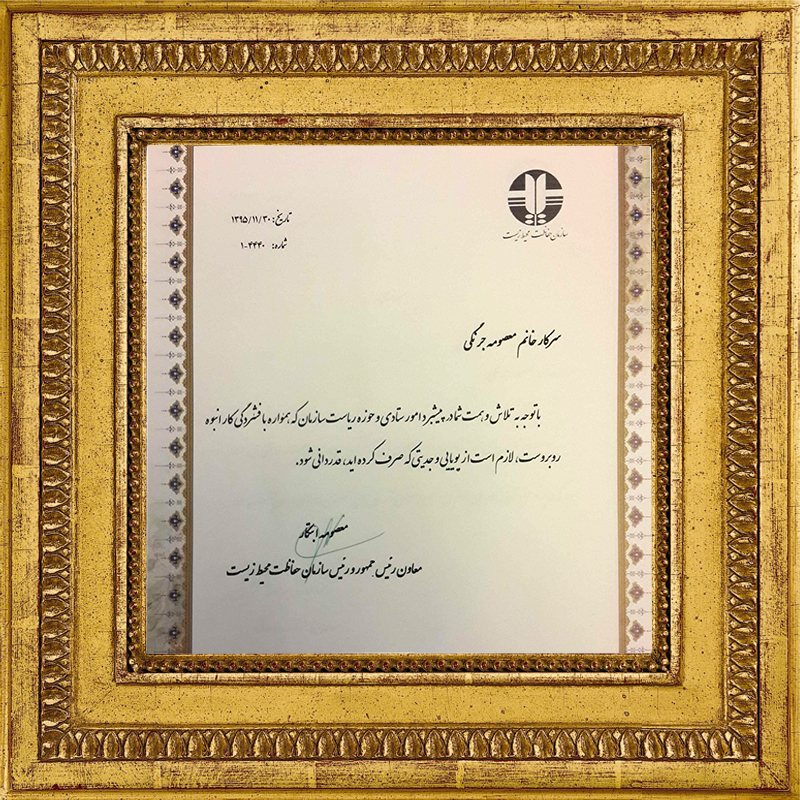 سازمان حفاظت محیط زیست
تاریخ: ۱۳۹۵/۱۱/۳۰
شماره: ۴۴۴۰-۱
سرکار خانم معصومه جرنگی
با توجه به تلاش و همت شما در پیشبرد امور ستادی و حوزه ریاست سازمان که همواره با فشردگی کار انبوه
روبروست، لازم است از پویایی و جدیتی که صرف کرده اید، قدردانی شود.
معصومه ابتکار
معاون رئیس جمهور و رئیس سازمان حفاظت محیط زیست